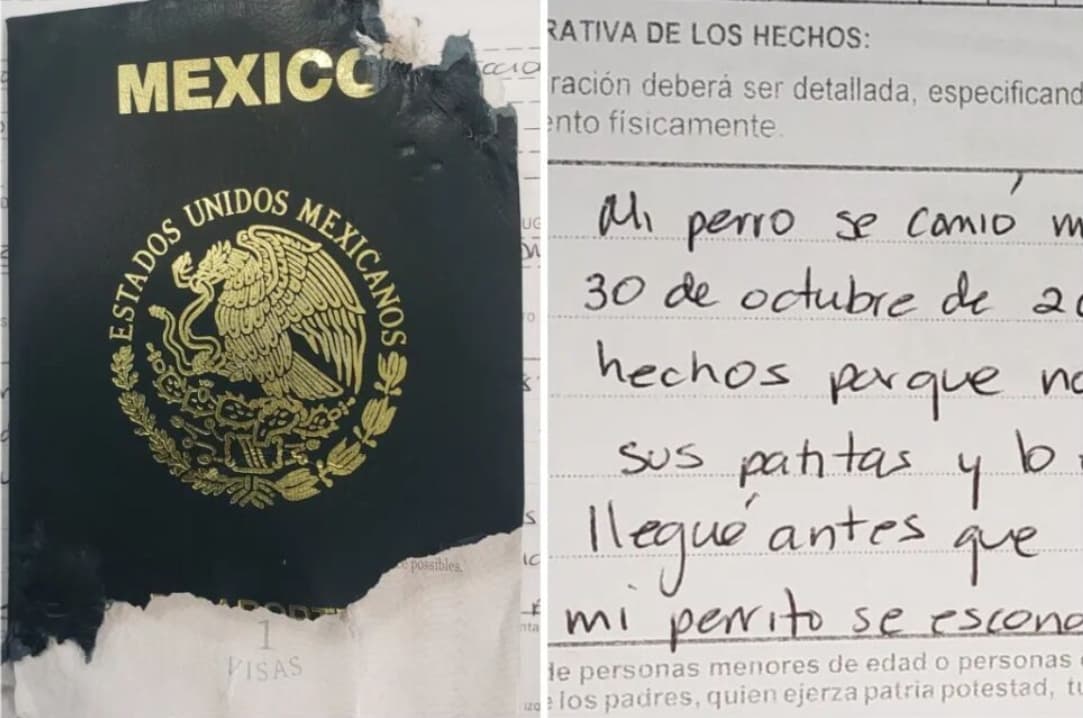 MEXICO
ESTADOS UNIDOS MEXICANOS
e posibles.
1
VISAS
RATIVA DE LOS HECHOS:
ración deberá ser detallada, especificand
ento físicamente.
Mi perro se comió m
30 de octubre de 20
hechos porque no
sus patitas y lo
llegué antes que
mi perrito se escond
de personas menores de edad o personas
e los padres, quien ejerza patria potestad, tu